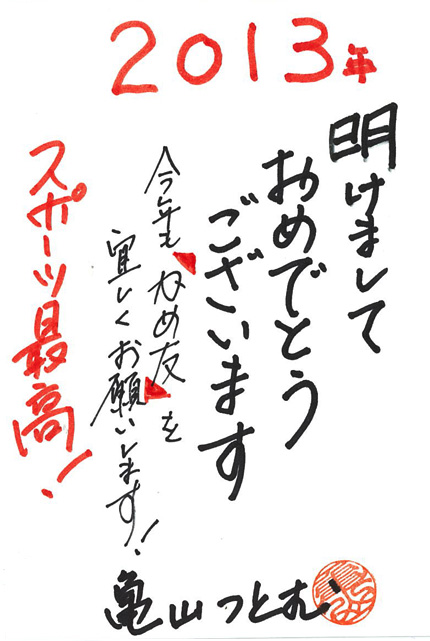 2013年
明けまして
おめでとう
ございます
今年もかめ友を
宜しくお願いします!
スポーツ最高!
亀山つとむ